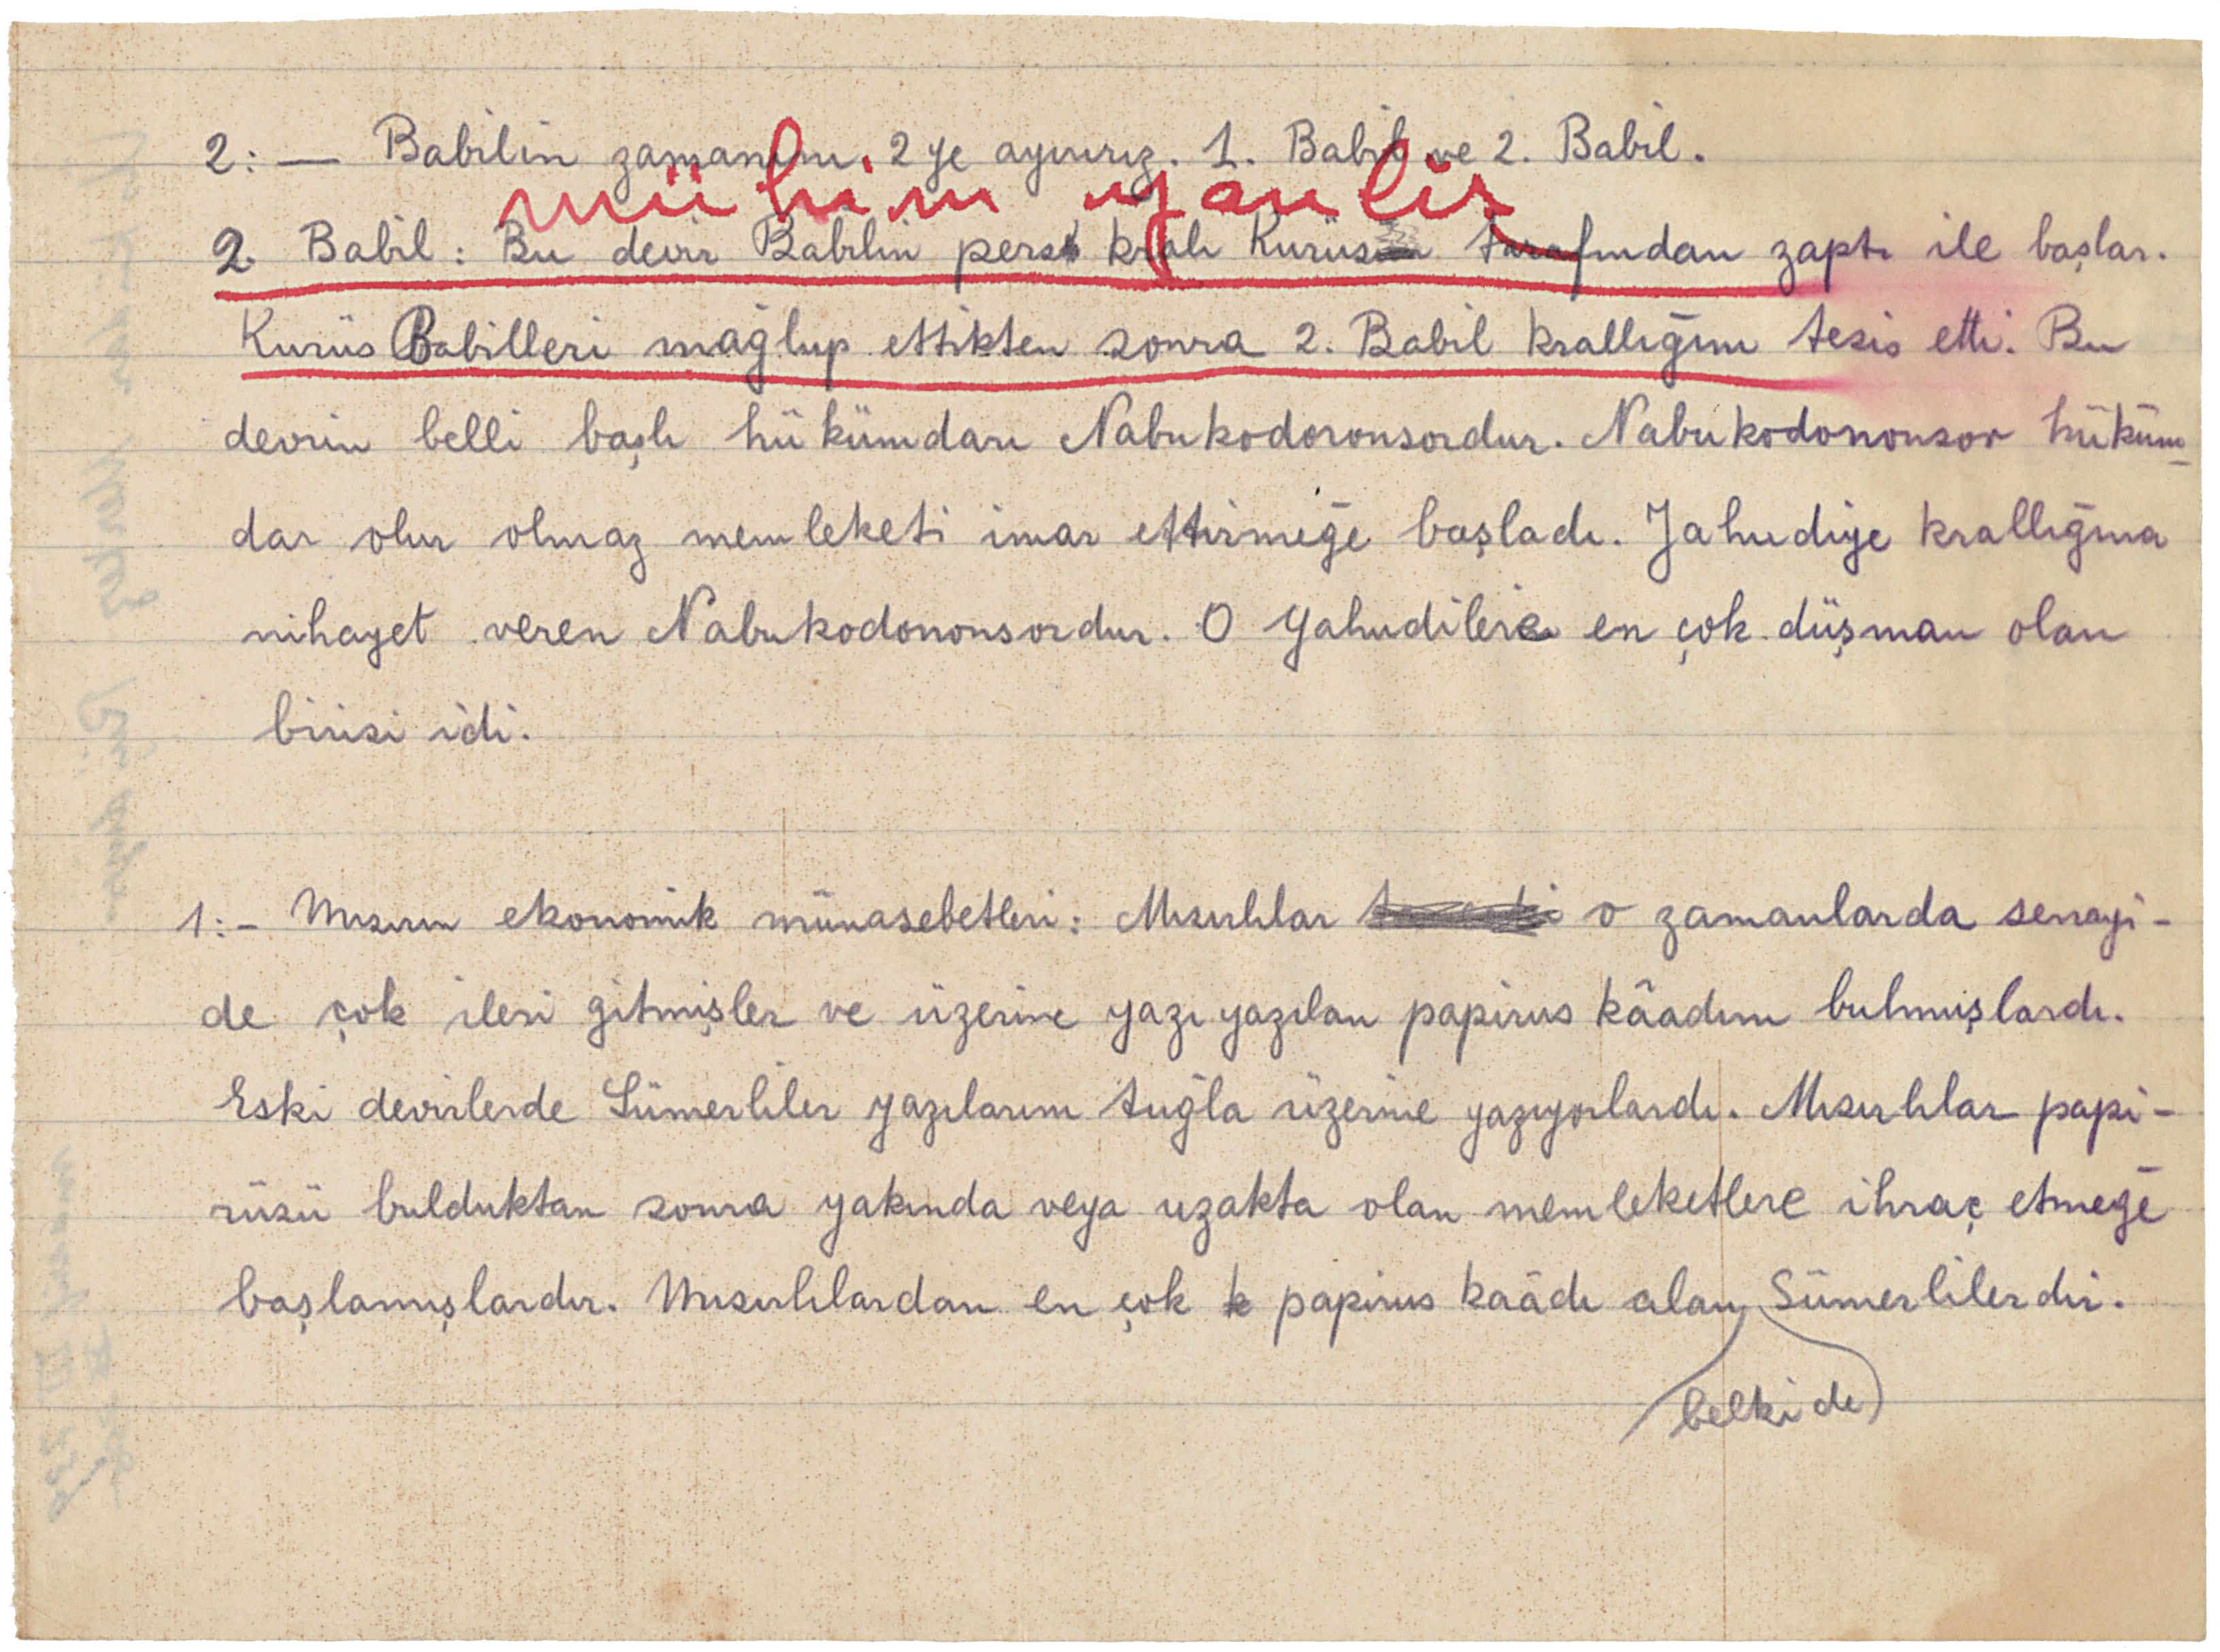 2:— Babilin zamanını. 2ye ayırırız. 1. Babil ve 2. Babil.
mühim yanlış
2. Babil: Bu devir Babilin pers kralı Kurüs tarafından zaptı ile başlar.
Kurüs Babilleri mağlup ettikten sonra 2. Babil krallığını tesis etti. Bu
devrin belli başlı hükümdarı Nabukodoronsordur. Nabukodononsor hüküm-
dar olur olmaz memleketi imar ettirmeğe başladı. Jahudiye krallığına
nihayet veren Nabukodononsordur. O Yahudilere en çok düşman olan
birisi idi.
1:- Mısırın ekonomik münasebetleri: Mısırlılar o zamanlarda senayi-
de çok ileri gitmişler ve üzerine yazı yazılan papirus kâadını bulmuşlardı.
Eski devirlerde Sümerliler yazılarını tuğla üzerine yazıyorlardı. Mısırlılar papi-
rüsü bulduktan sonra yakında veya uzakta olan memleketlere ihraç etmeğe
başlamışlardır. Mısırlılardan en çok papirus kaâdı alan Sümerlilerdir.
belki de